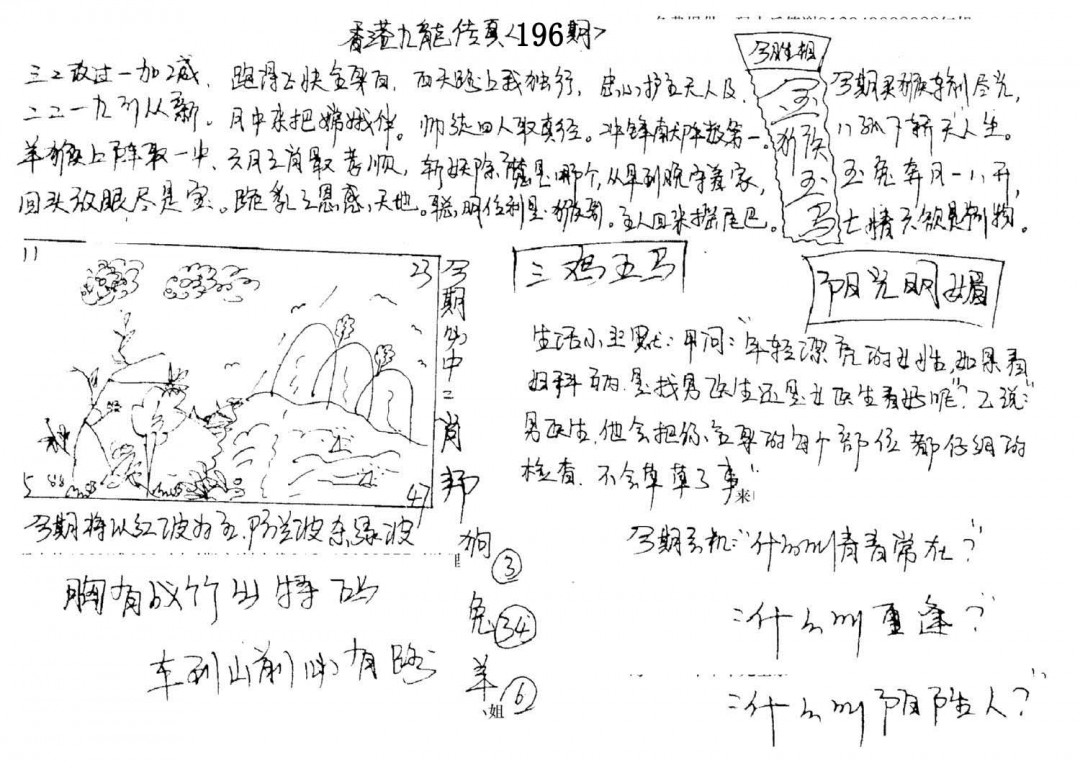 香港九龍传真<196期>
三二改过一加减，跑得飞快全身白，西天路上我独行，忠心护主天人及，
二二一九引从新。月中来把嫦娥伴。师徒四人取真经。冲锋献阵数第一。
羊猴上阵取一中，六月三肖最孝顺，斩妖除魔是哪个，从早到晚守着家，
回头放眼尽是宝。跪乳之恩感天地。聪明伶利是猴哥。主人回来摇尾巴。
今期生相
玉
猴
玉
马
今期灵猴
八
玉兔奔月一八开，
七情六欲是
11
23
5
47
今期必中二肖
狗③
兔㉞
羊⑥
姐
三鸡五马
阳光明媚
生活小幽默：甲问："年轻漂亮的女性，如果看
妇科病，是找男医生还是女医生看好呢"？乙说："
男医生，他会把你全身的每个部位都仔细的
检查，不会草草了事"
来
今期将以红波为主，防兰波杀绿波
胸有成竹出特码
车到山前必有路
今期玄机："什么叫青春常在？"
："什么叫重逢？"
："什么叫陌生人？"